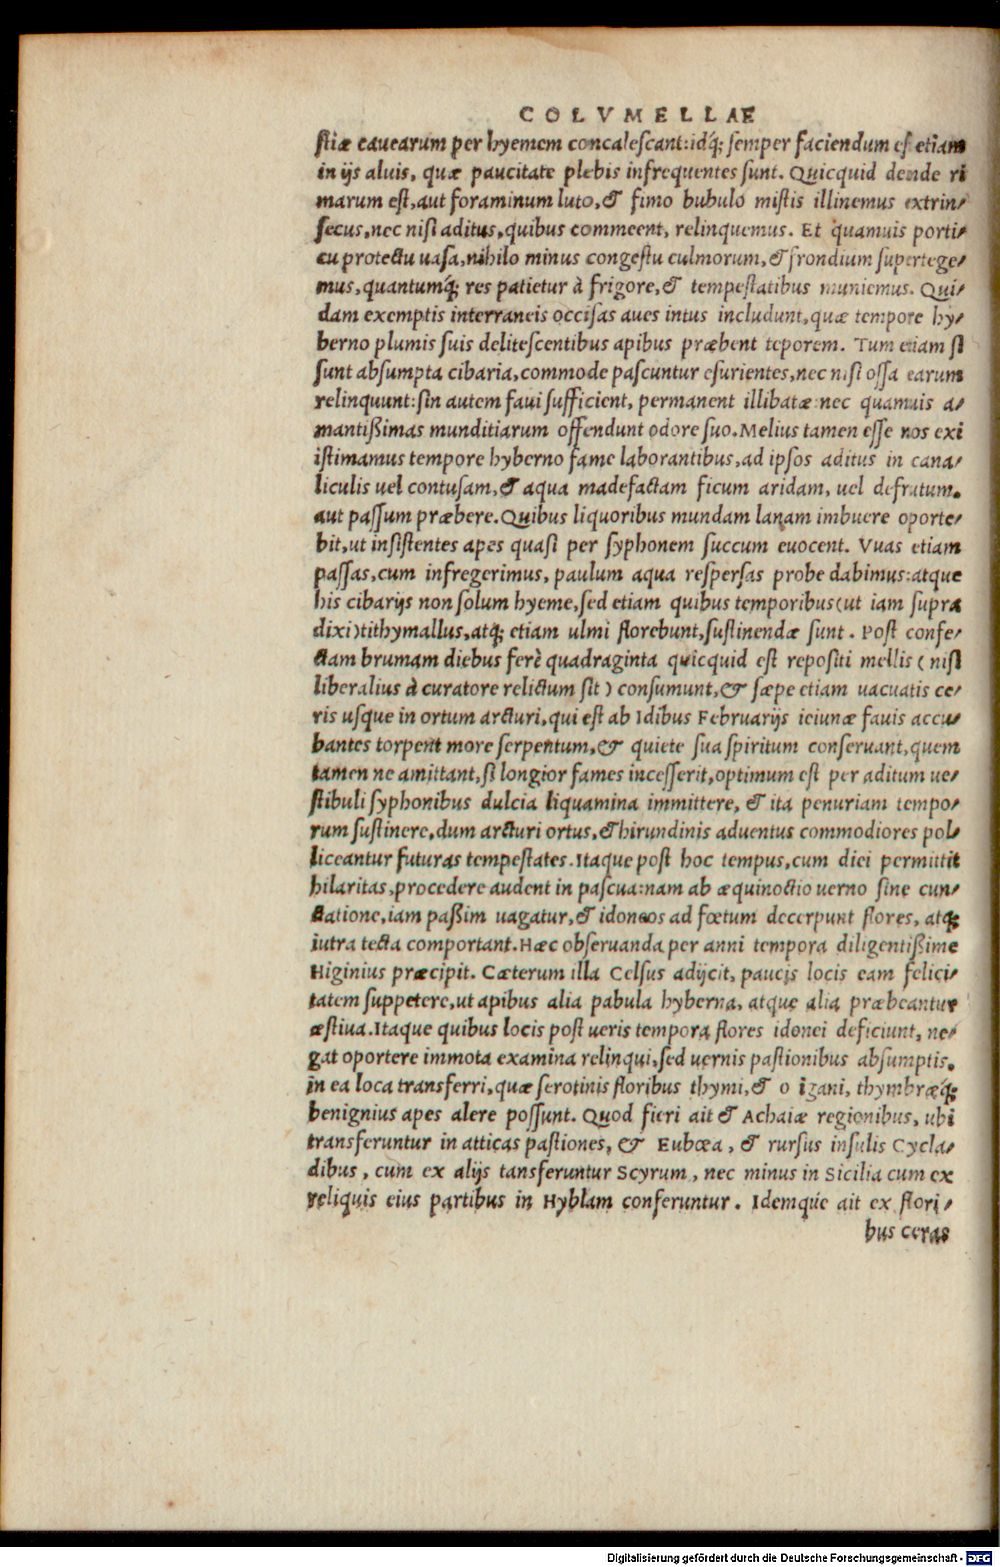 COLVMELLAE
stiæ cauearum per hyemem concalescant: idq́; semper faciendum est etiam
in ijs aluis, quæ paucitate plebis infrequentes sunt. Quicquid deinde ri
marum est, aut foraminum luto, & fimo bubulo mistis illinemus extrin⸗
secus, nec nisi aditus, quibus commeent, relinquemus. Et quamuis porti⸗
cu protectu uasa, nihilo minus congestu culmorum, & frondium supertege⸗
mus, quantumq́; res patietur à frigore, & tempestatibus muniemus. Qui⸗
dam exemptis interraneis occisas aues intus includunt, quæ tempore hy⸗
berno plumis suis delitescentibus apibus præbent teporem. Tum etiam si
sunt absumpta cibaria, commode pascuntur esurientes, nec nisi ossa earum
relinquunt: sin autem faui sufficient, permanent illibatæ: nec quamuis a⸗
mantißimas munditiarum offendunt odore suo. Melius tamen esse nos exi
istimamus tempore hyberno fame laborantibus, ad ipsos aditus in cana⸗
liculis uel contusam, & aqua madefactam ficum aridam, uel defrutum,
aut passum præbere. Quibus liquoribus mundam lanam imbuere oporte⸗
bit, ut insistentes apes quasi per syphonem succum euocent. Vuas etiam
passas, cum infregerimus, paulum aqua respersas probe dabimus: atque
his cibarijs non solum hyeme, sed etiam quibus temporibus (ut iam supra
dixi) tithymallus, atq; etiam ulmi florebunt, sustinendæ sunt. Post confe⸗
ctam brumam diebus ferè quadraginta quicquid est repositi mellis (nisi
liberalius à curatore relictum sit) consumunt, & sæpe etiam uacuatis ce⸗
ris usque in ortum arcturi, qui est ab Idibus Februarijs ieiunæ fauis accu⸗
bantes torpent more serpentum, & quiete sua spiritum conseruant, quem
tamen ne amittant, si longior fames incesserit, optimum est per aditum ue⸗
stibuli syphonibus dulcia liquamina immittere, & ita penuriam tempo⸗
rum sustinere, dum arcturi ortus, & hirundinis aduentus commodiores pol⸗
liceantur futuras tempestates. Itaque post hoc tempus, cum diei permittit
hilaritas, procedere audent in pascua: nam ab æquinoctio uerno sine cun⸗
ctatione, iam paßim uagatur, & idoneos ad fœtum decerpunt flores, atq;
iutra tecta comportant. Hæc obseruanda per anni tempora diligentißime
Higinius præcipit. Cæterum illa Celsus adijcit, paucis locis eam felici⸗
tatem suppetere, ut apibus alia pabula hyberna, atque alia præbeantur
æstiua. Itaque quibus locis post ueris tempora flores idonei deficiunt, ne⸗
gat oportere immota examina relinqui, sed uernis pastionibus absumptis,
in ea loca transferri, quæ serotinis floribus thymi, & o igani, thymbræq́;
benignius apes alere possunt. Quod fieri ait & Achaiæ regionibus, ubi
transferuntur in atticas pastiones, & Eubœa, & rursus insulis Cycla⸗
dibus, cum ex alijs tansferuntur Scyrum, nec minus in Sicilia cum ex
reliquis eius partibus in Hyblam conferuntur. Idemque ait ex flori⸗
bus ceras
Digitalisierung gefördert durch die Deutsche Forschungsgemeinschaft - DFG